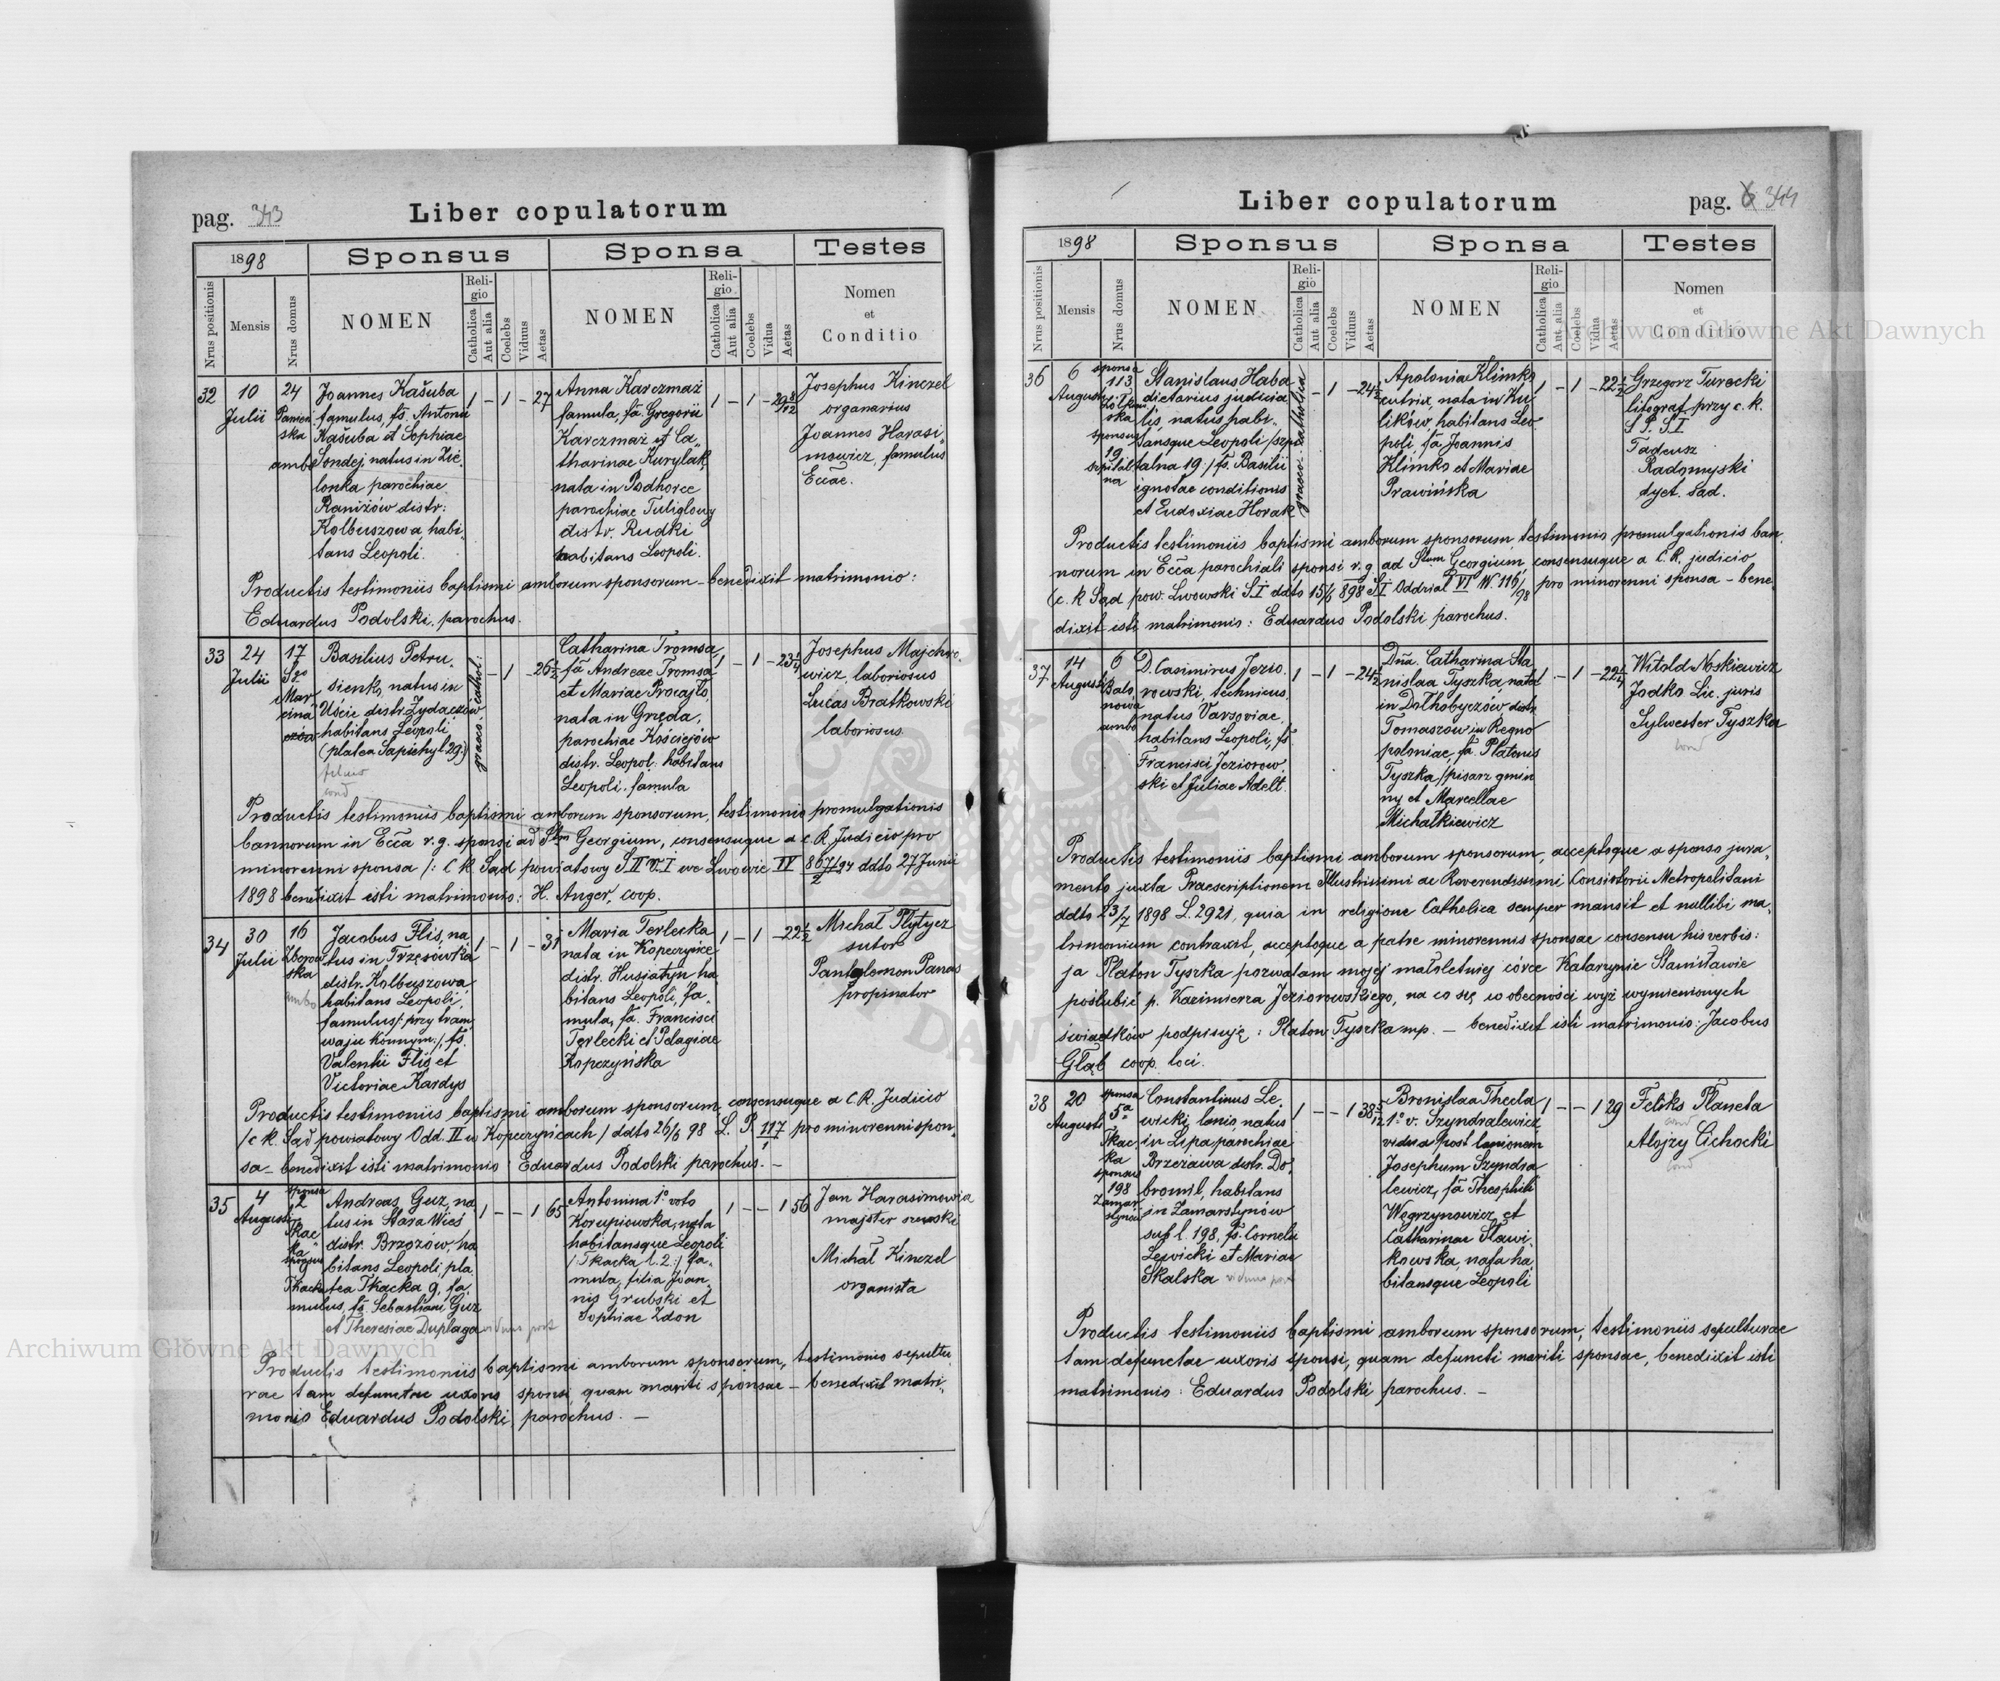 pag. 343
Liber copulatorum
1898
Sponsus
Sponsa
Testes
Nrus positionis
Mensis
Nrus domus
NOMEN
Religio
Catholica
Aut alia
Coelebs
Viduus
Aetas
NOMEN
Religio
Catholica
Aut alia
Coelebs
Vidua
Aetas
Nomen
et
Conditio
32
10
Julii
24
Panień
ska
ambo
Joannes Kašuba
famulus, fs. Antonii
Kašuba et Sophiae
Sondej natus in Zie
lonka parochiae
Raniżów distr:
Kolbuszowa, habi
tans Leopoli.
1 - 1 - 27
Anna Karczmaż
famula, fa Gregorii
Karczmaż et Ca„
tharinae Kurylak
nata in Podhorce
parochiae Tuligłowy
distr. Rudki
habitans Leopoli.
1 - 1 - 29 8/12
Josephus Kinczel
organarius
Joannes Harasi„
mowicz, famulus
Eccae.
Productis testimoniis baptismi amborum sponsorum - benedixit matrimonio:
Eduardus Podolski. parochus.
33
24
Julii
17
Sgo
Mar
cina
Basilius Petru.
sienko, natus in
Uście distr. Żydaczów
habitans Leopoli
(platea Sapiehy l. 29:)
graeco, cathol:
- 1 - 26 1/2
Catharina Tromsa
fa Andreae Tromsa
et Mariae Procajło,
nata in Grzęda,
parochiae Kościejów
distr. Leopol. habitans
Leopoli. famula
1 - 1 - 23 1/4
Josephus Majchro„
wicz, laboriosus
Lucas Bratkowski
laboriosus
Productis testimoniis baptismi amborum sponsorum, testimonio promulgationis
bannorum in Ecca r.g. sponsi ad Stm Georgium, consensuque a c. R. Judicio pro
minorenni sponsa /: C k Sąd powiatowy S. II V. I we Lwowie IV 867/94 2 ddto 27 Junii
1898 benedixit isti matrimonio: H. Anger, coop.
34
30
Julii
16
Zborow
ska
ambo
Jacobus Flis, na
tus in Trzęsówka
distr. Kolbuszowa
habitans Leopoli,
famulus /: przy tram
waju konnym:/, fs.
Valentii Flis et
Victoriae Kardyś
1 - 1 - 31
Maria Terlecka
nata in Kopeczyńce
distr. Husiatyn ha
bitans Leopoli, fa.
mula, fa. Francisci
Terlecki et Pelagiae
Kopczyńska
1 - 1 - 22 1/2
Michał Płytycz
sutor
Pantalemon Panas
propinator
Productis testimoniis baptismi amborum sponsorum, consensuque a C R. Judicio
/c k. Sąd powiatowy Odd. II w Kopeczyńcach / ddto 26/6 98 L. P. 117/1 pro minorenni spon„
sa - benedixit isti matrimonio: Eduardus Podolski parochus. -
35
4
Augusti
sponsa
2
Tkac
ka
sponsus
9
Tkacka
Andreas Guz, na
tus in Stara Wieś
distr. Brzozów, ha
bitans Leopoli, pla
tea Tkacka 9, fa.
mulus, fs. Sebastiani Guz
et Theresiae Duplaga viduus post
1 - - 1 65
Antonina 1o voto
Korupiowska, nata
habitansque Leopoli
/:Tkacka l. 2:/ fa„
mula, filia Joan„
nis Grubski et
Sophiae Zdon
1 - - 1 56
Jan Harasimowia
majster
Michał Kinczel
organista
Productis testimoniis baptismi amborum sponsorum, testimonio sepultu
rae tam defunctae uxoris sponsi, quam mariti sponsae - benedixit matri„
monio Eduardus Podolski, parochus. -
Liber copulatorum
pag. 344
1898
Sponsus
Sponsa
Testes
Nrus positionis
Mensis
Nrus domus
NOMEN
Religio
Catholica
Aut alia
Coelebs
Viduus
Aetas
NOMEN
Religio
Catholica
Aut alia
Coelebs
Vidua
Aetas
Nomen
et
Conditio
36
6
Augusti
sponsa
113
ska
sponsus
19
szpital
na
Stanislaus Haba
dietarius judicia
lis, natus habi„
tansque Leopoli /szpi
talna 19:/ fs. Basilii
ignotae conditionis
et Eudoxiae Horak
graeco-catholica
- 1 - 24 1/2
Apolonia Klimko
nutrix, nata in Ku
lików, habitans Leo
poli, fa Joannis
Klimko et Mariae
Prawińska
1 - 1 - 22 1/2
Grzegorz Turecki
litograf przy c. k.
S P. S I
Tadeusz
Radomyski
dyet. sąd.
Productis testimoniis baptismi amborum sponsorum, testimonio promulgationis ban„
norum in Ecca parochiali sponsi r. g. ad Stum Georgium, consensuque a C. R. judicio
(c. k Sąd pow. Lwowski S. I ddto 15/6 898 S I Oddział VI N. 116/98 pro minorenni sponsa - bene
dixit isti matrimonio: Eduardus Podolski parochus.
37
14
Augusti
6
Bato
nowa
ambo
D. Casimirus Jezio
rowski, technicus,
natus Varsoviae,
habitans Leopoli, fs.
Francisci Jeziorow„
ski et Juliae Adelt
1 - 1 - 24 1/2
Dna. Catharina Sta
nislaa Tyszka, nata
in Dołhobyczów distr.
Tomaszów in Regno
poloniae, fa. Platonis
Tyszka /pisarz gmin
ny et Marcellae
Michałkiewicz
1 - 1 - 22 1/4
Witold Noskiewicz
Jodko Lic. juris
Sylwester Tyszka
Productis testimoniis baptismi amborum sponsorum, acceptoque a sponso jura„
mento juxta Praescriptionem Illustrissimi ac Reverendissimi Consistorii Metropolitani
ddto 23/7 1898 L. 2921, quia in religione Catholica semper mansit et nullibi ma„
trimonium contraxit, acceptoque a patre minorennis sponsae consensu his verbis:
ja Platon Tyszka pozwalam mojéj małoletniej córce Katarzynie Stanisławie
poślubić p. Kazimierza Jeziorowskiego, na co się w obecności wyż wymienionych
świadków podpisuję: Platon Tyszka mp. - benedixit isti matrimonio: Jacobus
Głąb coop. loci.
38
20
Augusti
sponsa
5a
Tkac
ka
sponsus
198
Zamar
stynów
Constantinus Le„
wicki lanio natus
in Lipa parochiae
Brzeżawa distr. Do„
bromil, habitans
in Zamarstynów
sub l. 198, fs. Cornelii
Lewicki et Mariae
Skalska viduus post
1 - - 1 38 5/12
Bronislaa Thecla
1o v. Szyndralewicz
vidua post lanionem
Josephum Szyndra
lewicz, fa Theophili
Węgrzynowicz, et
Catharinae Sławi„
kowska, nata ha„
bitansque Leopoli
1 - - 1 29
Feliks Planeta
Alojzy Cichocki
Productis testimoniis baptismi amborum sponsorum, testimoniis sepulturae
tam defunctae uxoris sponsi, quam defuncti mariti sponsae, benedixit isti
matrimonio: Eduardus Podolski parochus. -
Archiwum Główne Akt Dawnych
Archiwum Główne Akt Dawnych